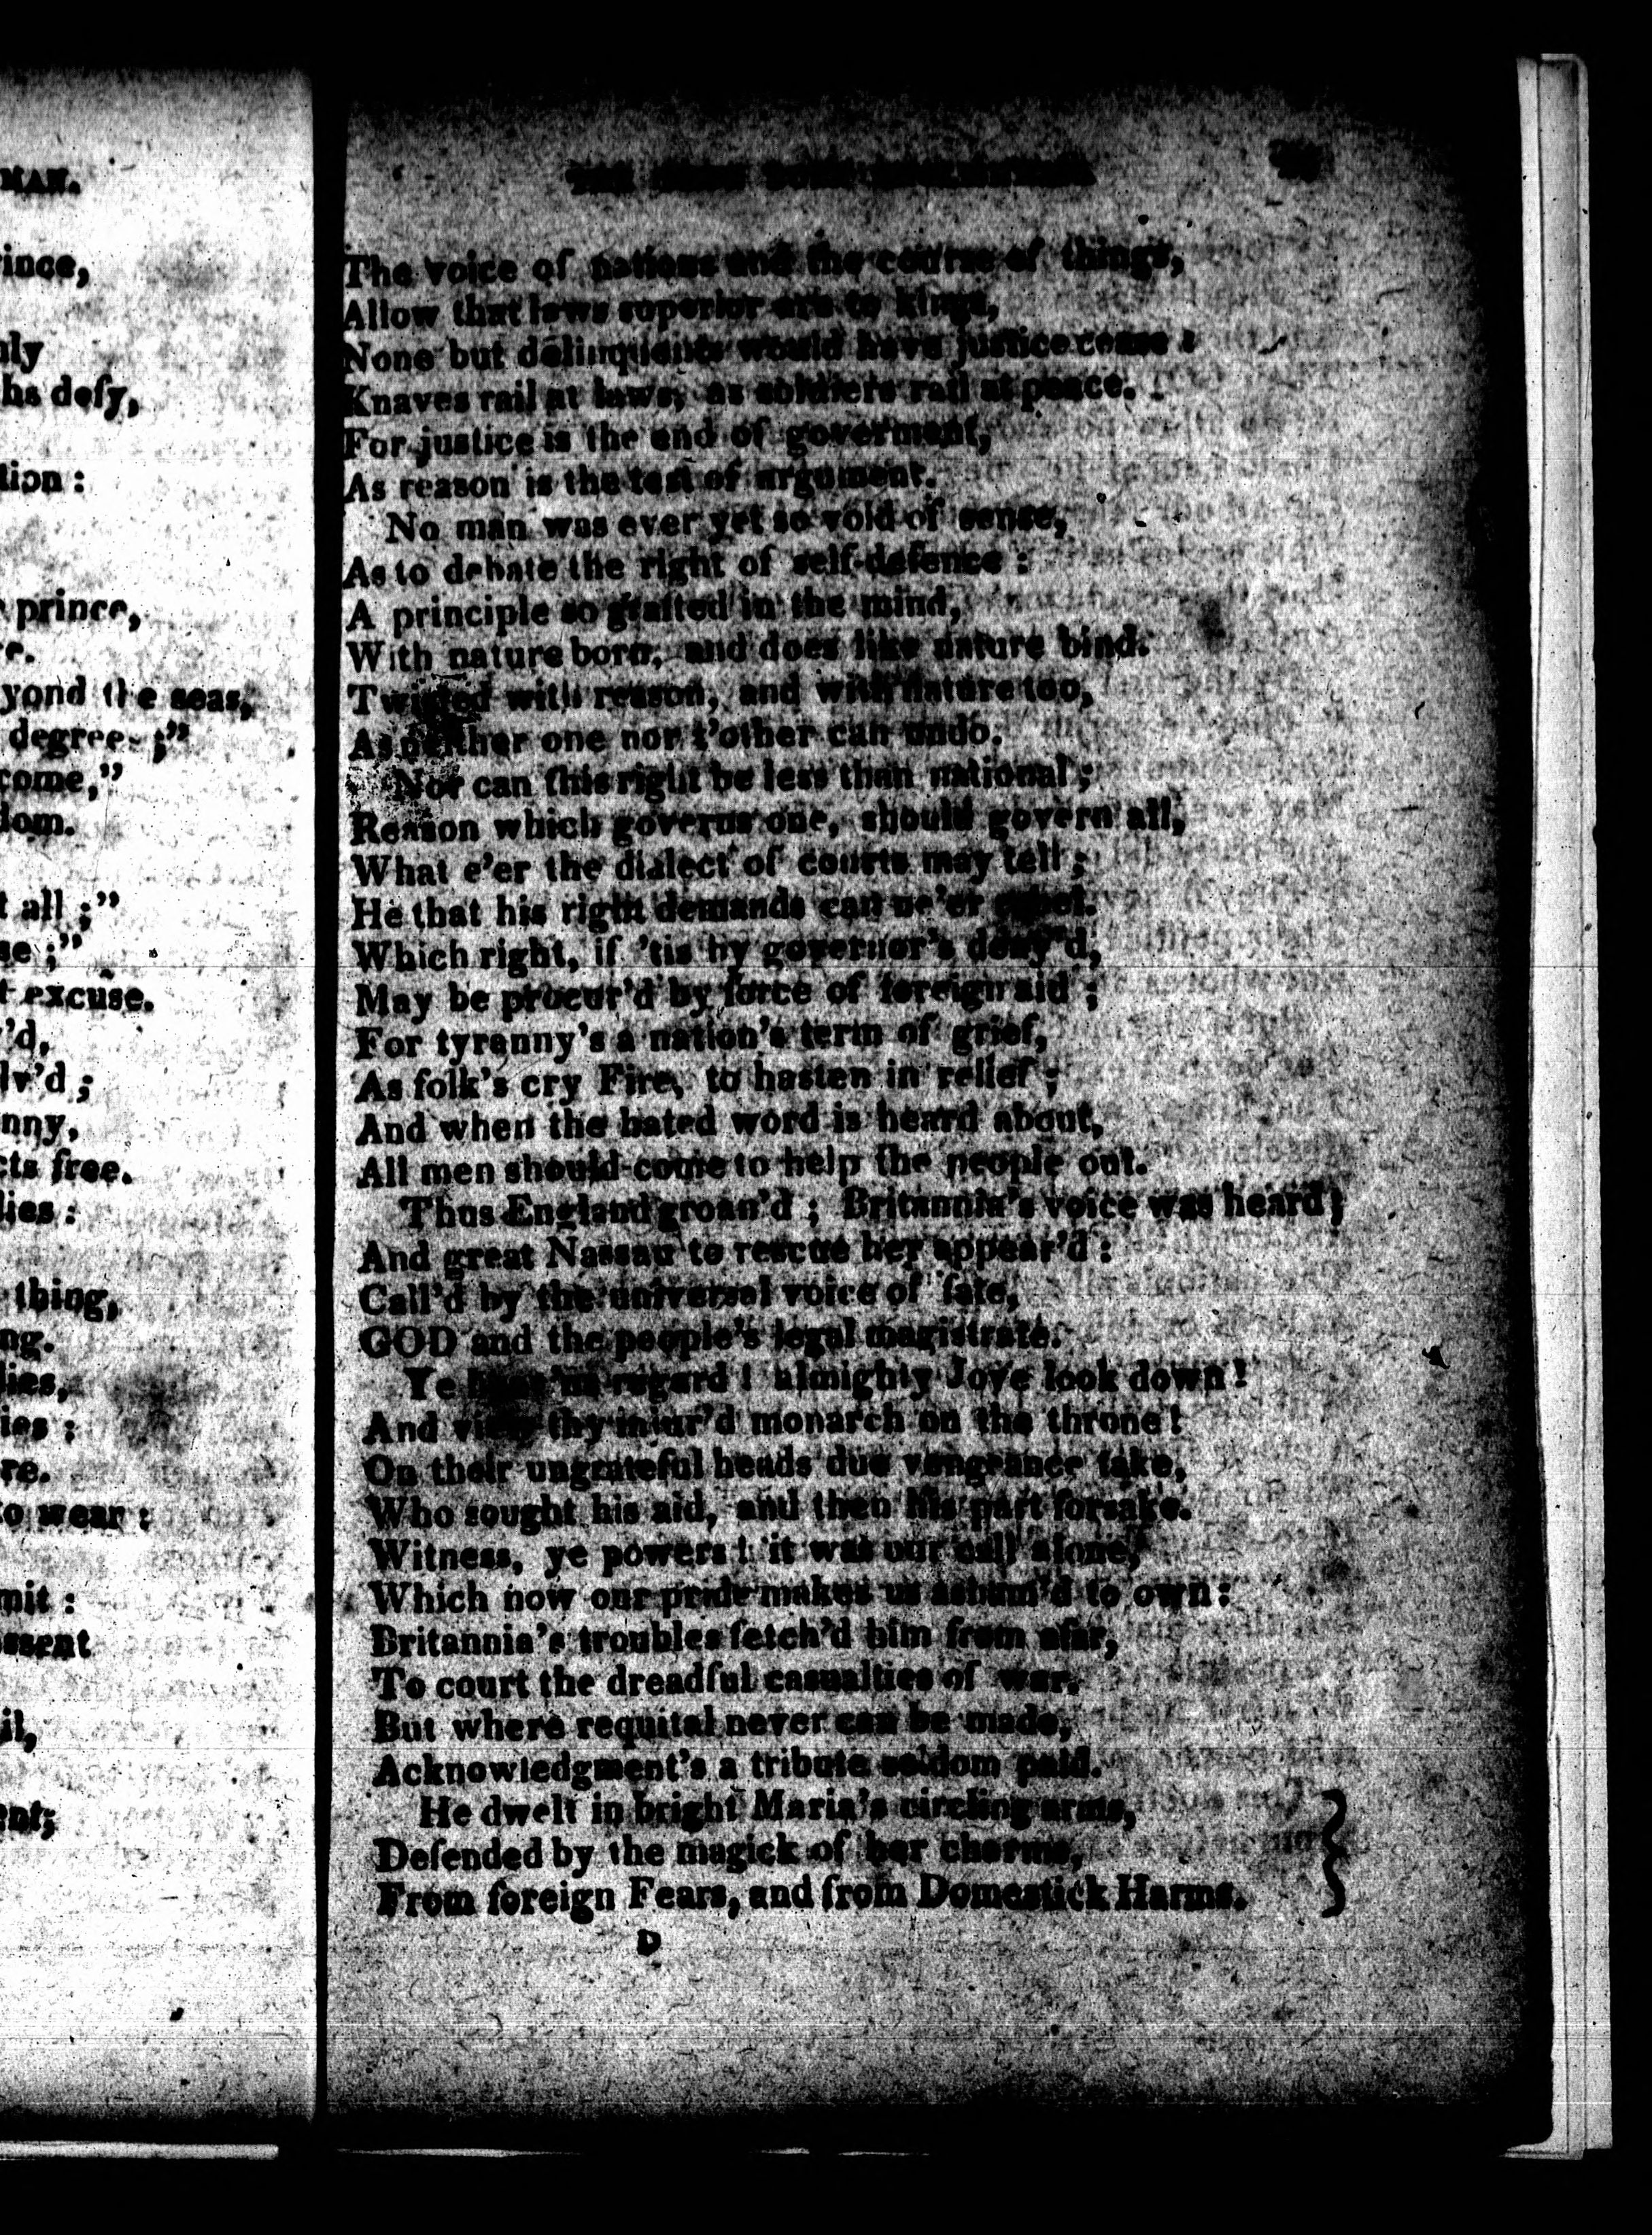 MAN.
ince,
ly
hs defy,
tion :
prince,
e.
yond the seas,
degree- ;”
come,”
dom.
t all ;”
se ;”
t excuse.
'd,
lv'd ;
nny,
cts free.
lies :
thing,
ng.
lies,
ies :
re.
to wear :
mit :
ssent
il,
ent;
The voice of nations and the course of things,
Allow that laws superior are to kings,
None but delinquents would have justice cease :
Knaves rail at laws, as soldiers rail at peace.
For justice is the end of goverment,
As reason is the test of argument.
No man was ever yet so void of sense,
As to debate the right of self-defence :
A principle so grafted in the mind,
With nature born, and does like nature bind.
Twisted with reason, and with nature too,
As neither one nor t'other can undo.
Nor can this right be less than national ;
Reason which governs one, should govern all,
What e'er the dialect of courts may tell ;
He that his right demands can ne'er
Which right, if 'tis by governor's deny'd,
May be procur'd by force of foreign aid ;
For tyranny's a nation's term of grief,
As folk's cry Fire, to hasten in relief ;
And when the hated word is heard about,
All men should come to help the people out.
Thus England groan'd ; Britannia's voice was heard ;
And great Nassau to rescue her appear'd :
Call'd by the universal voice of fate,
GOD and the people's legal magistrate.
Ye regard ! almighty Jove look down !
And view thy injur'd monarch on the throne !
On their ungrateful heads due vengeance take,
Who sought his aid, and then his part forsake.
Witness, ye powers ! it was our call alone,
Which now our pride makes us asham'd to own :
Britannia's troubles fetch'd him from afar,
To court the dreadful casualties of war.
But where requital never can be made,
Acknowledgment's a tribute seldom paid.
He dwelt in bright Maria's circling arms,
Defended by the magick of her charms,
From foreign Fears, and from Domestick Harms.
D